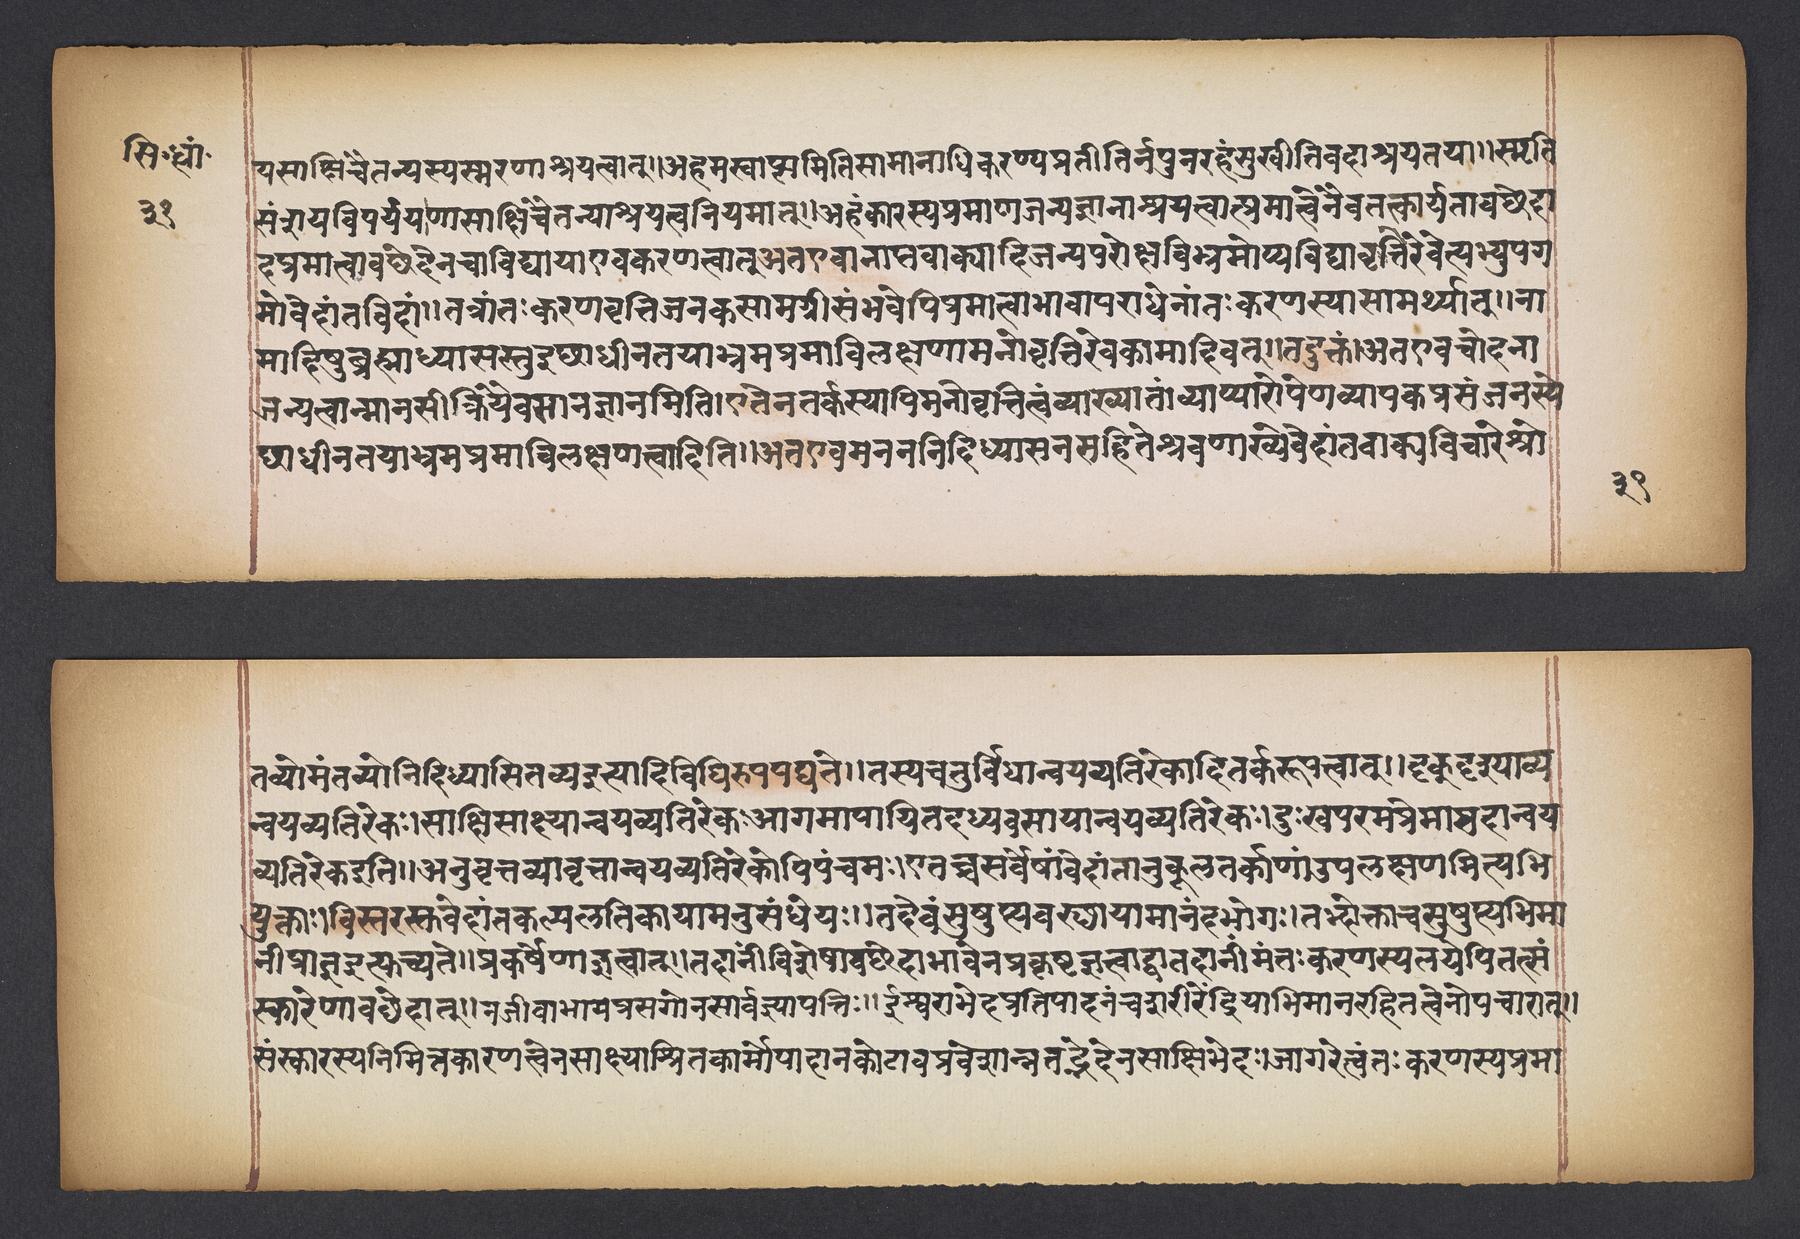 सि॰ध्यां॰
३१
यसाक्षिचैतन्यस्यस्मरणाश्रयत्वात्॥अहमस्वाप्समितिसामानाधिकरण्यप्रतीतिर्नपुनरहंसुखीतिवदाश्रयतया॥स्मृति
संशयविपर्ययाणासाक्षिचैतन्याश्रयत्वनियमात्॥अहंकारस्यप्रमाणजन्यज्ञानाश्रयत्वात्प्रमात्वेनैवतत्कार्यतावछेदा
दप्रमात्वावछेदेनचाविद्यायाएवकरणत्वात्अतएवानाप्तवाक्यादिजन्यपरोक्षविभ्रमोप्यविद्यावृत्तिरेवेत्यभ्युपग
मोवेदांतविदां॥तत्रांतःकरणवृत्तिजनकसामग्रीसंभवेपिप्रमात्वाभावापराधेनांतःकरणस्यासामर्थ्यात्॥ना
मादिषुब्रह्माध्यासस्तुइछाधीनतयाभ्रमप्रमाविलक्षणामनोवृत्तिरेवकामादिवत्॥तदुक्तं।अतएवचोदना
जन्यत्वान्मानसीक्रियैवसानज्ञानमिति।एतेनतर्कस्यापिमनोवृत्तित्वंव्याख्यातं।व्याप्यारोपेणव्यापकप्रसंजनस्ये
छाधीनतयाभ्रमप्रमाविलक्षणत्वादिति॥अतएवमनननिदिध्यासनसहितेश्रवणाख्येवेदांतवाक्यविचारेश्रो
३१
तव्योमंतव्योनिदिध्यासितव्यइत्यादिविधिरुपपद्यते॥तस्यचतुर्विधान्वयव्यतिरेकादितर्करूपत्वात्॥दृक्दृश्याव्य
न्वयव्यतिरेकः।साक्षिसाक्ष्यान्वयव्यतिरेकःआगमापायितदध्यवसायान्वयव्यतिरेकः।दुःखपरमप्रेमास्पदान्वय
व्यतिरेकइति॥अनुवृत्तव्यावृत्तान्वयव्यतिरेकोपिपंचमः।एतच्चसर्वेषांवेदांतानुकूलतर्काणांउपलक्षणमित्यभि
युक्ताः।विस्तरस्तुवेदांतकल्पलतिकायामनुसंधेयः॥तदेवंसुषुप्त्यवस्थायामानंदभोगः।तद्भोक्ताचसुषुप्त्यभिमा
नीप्राज्ञइत्युच्यते॥प्रकर्षेणाज्ञत्वात्॥तदानींविशेषावछेदाभावेनप्रकृष्टज्ञत्वाद्वातदानींमंतःकरणस्यलयेपितत्सं
स्कारेणावछेदात्॥नजीवाभावप्रसंगोनसार्वज्ञ्यापत्तिः॥ईश्वराभेदप्रतिपादनंचशरीरेंद्रियाभिमानरहितत्वेनोपचारात्॥
संस्कारस्यनिमित्तकारणत्वेनसाक्ष्याश्रितकार्मोपादानकोटावप्रवेशान्नतद्भेदेनसाक्षिभेदः।जागरेत्वंतःकरणस्यप्रमा